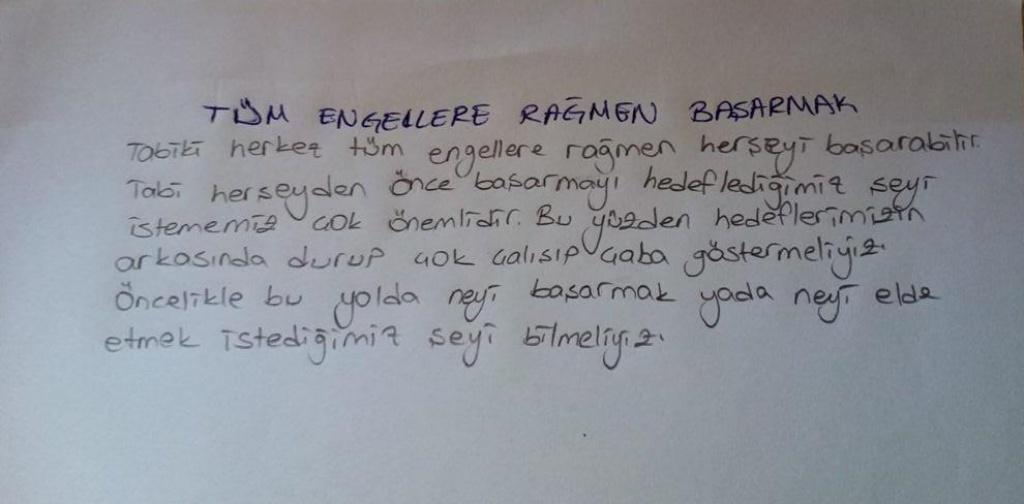 TÜM ENGELLERE RAĞMEN BAŞARMAK
Tabiki herkez tüm engellere rağmen herşeyi başarabilir.
Tabi herşeyden önce başarmayı hedeflediğimiz şeyi
istememiz çok önemlidir. Bu yüzden hedeflerimizin
arkasında durup çok çalışıp çaba göstermeliyiz.
Öncelikle bu yolda neyi başarmak yada neyi elde
etmek istediğimiz şeyi bilmeliyiz.